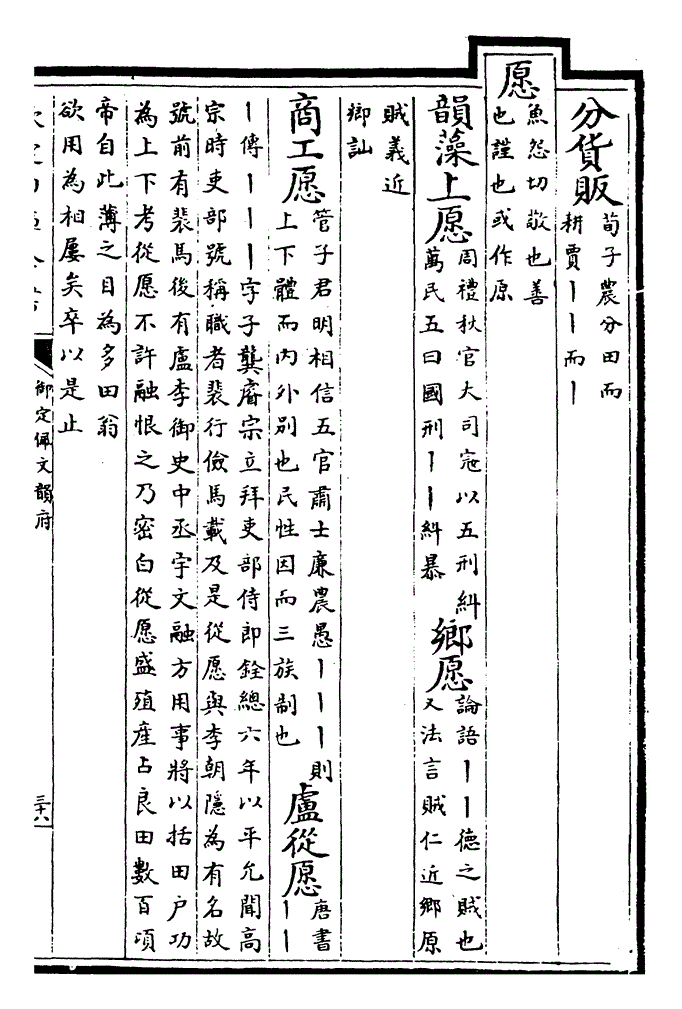 分貨販
荀子農分田而
耕賈丨丨而丨
愿
魚怨切敬也善
也謹也或作原
韻藻上愿
周禮秋官大司寇以五刑糾
萬民五曰國刑丨丨糾暴
鄉愿
論語丨丨德之賊也
又法言賊仁近鄉原
賊義近
鄉訕
商工愿
管子君明相信五官肅士廉農愚丨丨丨則
上下體而内外别也民性因而三族制也
盧從愿
唐書
丨丨
丨傳丨丨丨字子龔睿宗立拜吏部侍郎銓總六年以平允聞高
宗時吏部號稱職者裴行儉馬載及是從愿與李朝隱為有名故
號前有裴馬後有盧李御史中丞宇文融方用事將以括田户功
為上下考從愿不許融恨之乃密白從愿盛殖産占良田數百頃
帝自此薄之目為多田翁
欲用為相屢矣卒以是止
御定佩文韻府